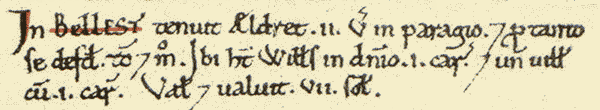 In BELLEST tenuit Ældret .ii. v̄ in paragio. ⁊ p tanto
se defd̄. tc̄ ⁊ m̊. Ibi ht̄ Witts in dn̄io .i. car̄. ⁊ un uitt
cū .i. car̄. Vat ⁊ ualuit .vii. sot.